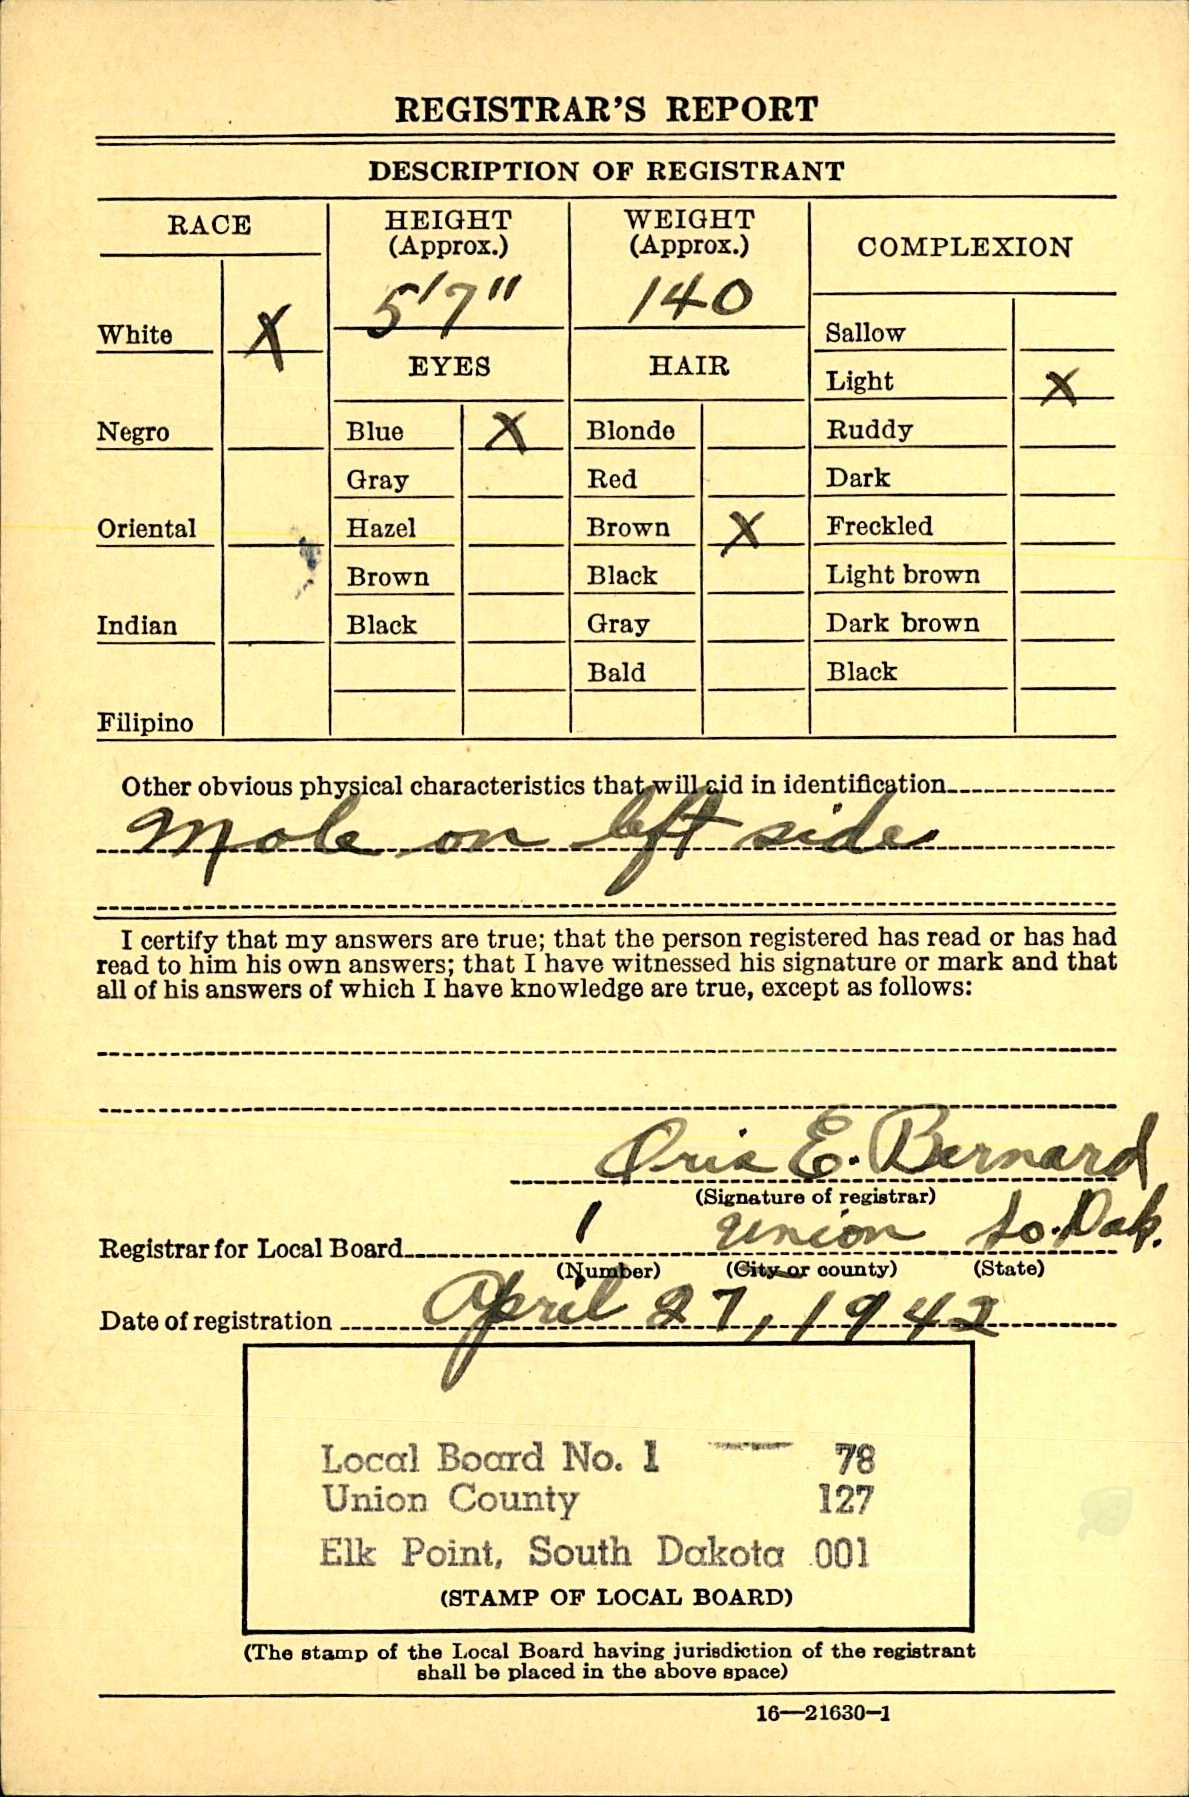 REGISTRAR'S REPORT
DESCRIPTION OF REGISTRANT
RACE
HEIGHT
(Approx.)
WEIGHT
(Approx.)
COMPLEXION
5'7"
140
White X
Sallow
EYES
HAIR
Light X
Negro
Blue X
Blonde
Ruddy
Gray
Red
Dark
Oriental
Hazel
Brown X
Freckled
Brown
Black
Light brown
Indian
Black
Gray
Dark brown
Bald
Black
Filipino
Other obvious physical characteristics that will aid in identification
Mole on left side
I certify that my answers are true; that the person registered has read or has had
read to him his own answers; that I have witnessed his signature or mark and that
all of his answers of which I have knowledge are true, except as follows:
Oris E. Bernard
(Signature of registrar)
Registrar for Local Board 1 Union So. Dak.
(Number) (City or county) (State)
Date of registration April 27, 1942
Local Board No. 1 78
Union County 127
Elk Point, South Dakota 001
(STAMP OF LOCAL BOARD)
(The stamp of the Local Board having jurisdiction of the registrant
shall be placed in the above space)
16—21630-1